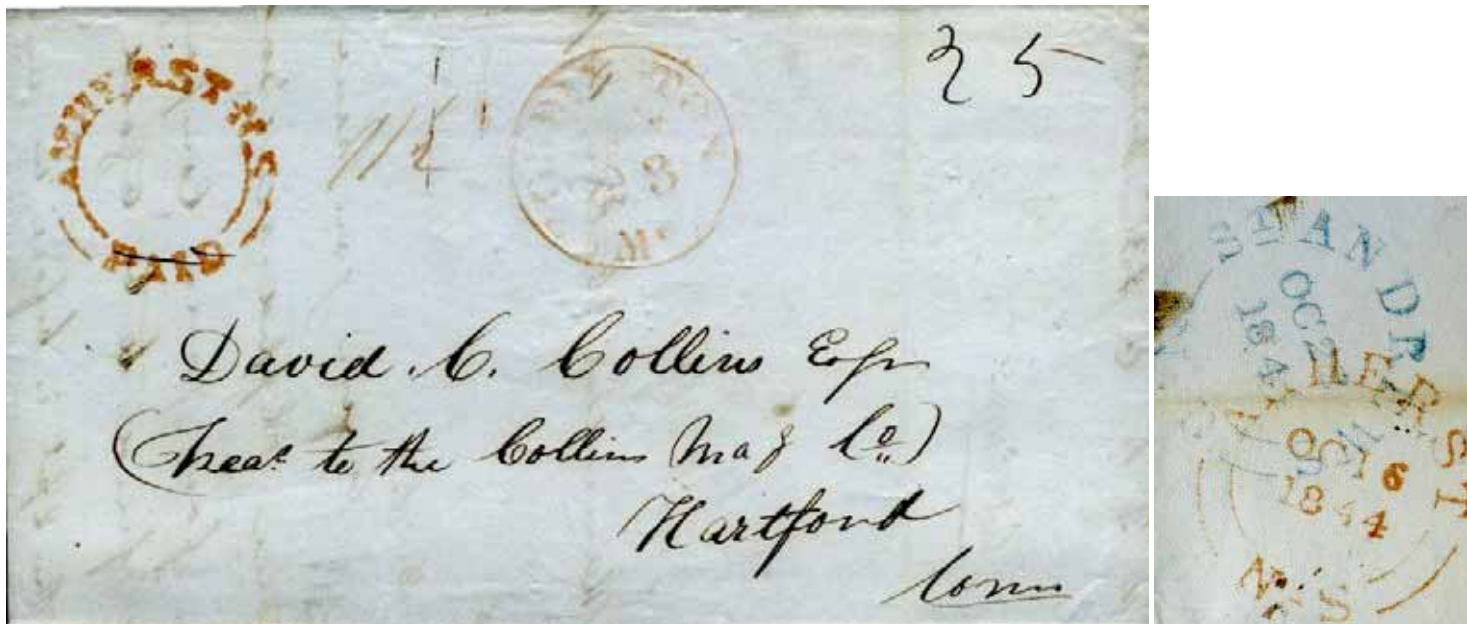 AMHERST N.S
PAID
11½
8
Me
25
David C. Collins Esqr
(Treasr to the Collins Maf Co)
Hartford
Conn
St ANDR
OC 2
184
AMHERST
OC 16
1844
N.S